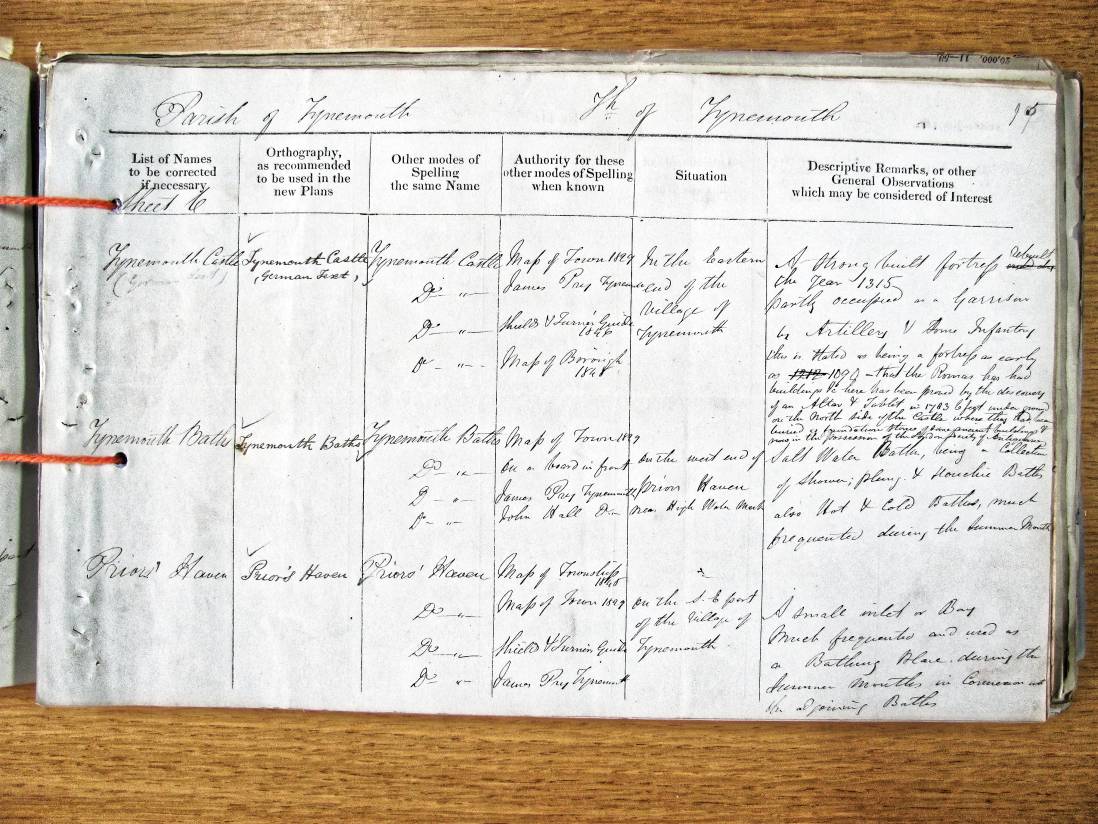 Parish of Tynemouth Th. of Tynemouth
List of Names to be corrected if necessary
Orthography, as recommended to be used in the new Plans
Other modes of Spelling the same Name
Authority for these other modes of Spelling when known
Situation
Descriptive Remarks, or other General Observations which may be considered of Interest
Sheet 6
Tynemouth Castle
Tynemouth Castle
(German Text)
Tynemouth Castle
Do "
Do "
Do "
Map of Town 1827
James Pry Tynemouth
Shields & Turner's Guide
1846
Map of Borough
1848
In the Eastern
end of the
Village of
Tynemouth
A Strong built fortress Rebuilt
the Year 1315
partly occupied as a Garrison
by Artillery & Some Infantry
this is Stated as being a fortress as early
as 1090 that the Romans has had
buildings &c here has been proved by the discovery
of an Altar & Tablet in 1783 6 feet under ground
on the North side of the Castle where they had been
buried as foundation stones of some ancient buildings &
now in the possession of the Society of Antiquaries
Tynemouth Baths
Tynemouth Baths
Tynemouth Baths
Do "
Do "
Do "
Map of Town 1827
On a board in front
James Pry Tynemouth
John Hall Do
On the west end of
Priors Haven
near High Water Mark
Salt Water Baths, being a Collection
of Shower, plung. & Douchie Baths
also Hot & Cold Baths, much
frequented during the Summer Months
Priors' Haven
Prior's Haven
Priors' Haven
Do "
Do "
Do "
Map of Township
1840
Map of Town 1827
Shields & Turner's Guide
James Pry Tynemouth
On the S.E part
of the Village of
Tynemouth
A small inlet or Bay
Much frequented and used as
a Bathing Place during the
Summer Months in Connexion with
the adjoining Baths